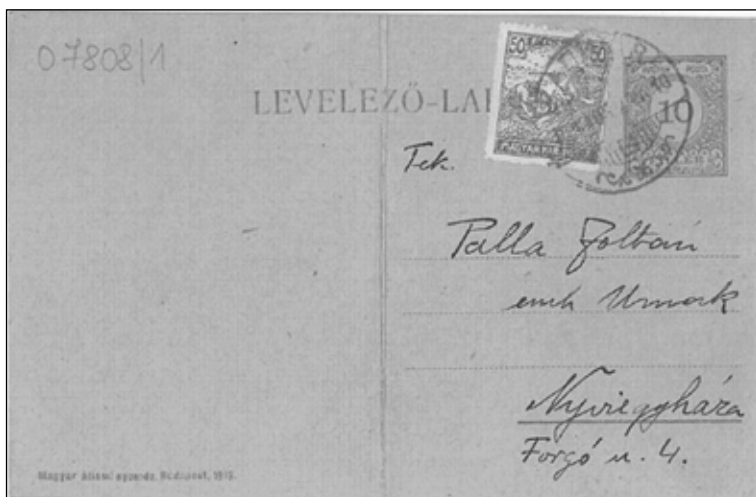 07808/1
LEVELEZŐ-LAP
50 50
MAGYAR KIR.
10
Tek.
Palla Zoltán
Urnak
Nyiregyháza
Forgó u. 4.
Magyar állami nyomda, Budapest, 1919.